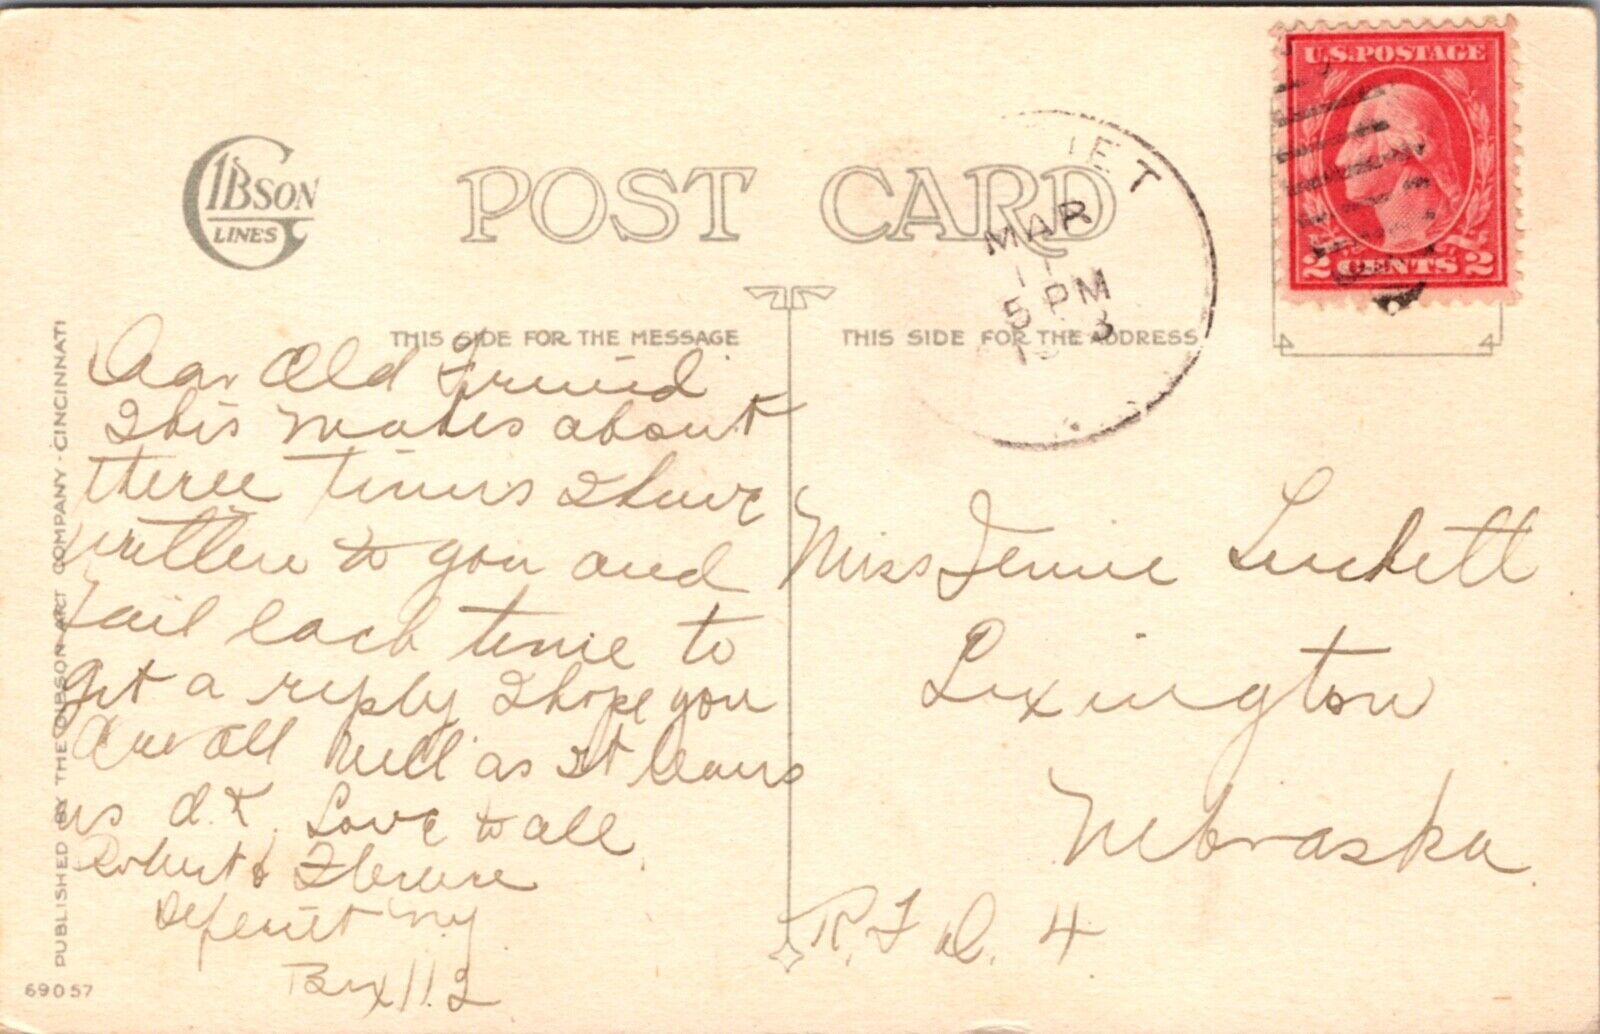 GIBSON
LINES
POST CARD
U.S. POSTAGE
2 CENTS 2
IET
MAR
11
5 PM
THIS SIDE FOR THE MESSAGE
THIS SIDE FOR THE ADDRESS
Dear Old Friend
This makes about
three times I have
written to you and
fail each time to
get a reply I hope you
are all well as it leaves
us O.K. Love to all
Robert &
NY
Box 112
Miss Jennie Luckett
Lexington
Nebraska
R.F.D. 4
PUBLISHED BY THE GIBSON ART COMPANY · CINCINNATI
69057